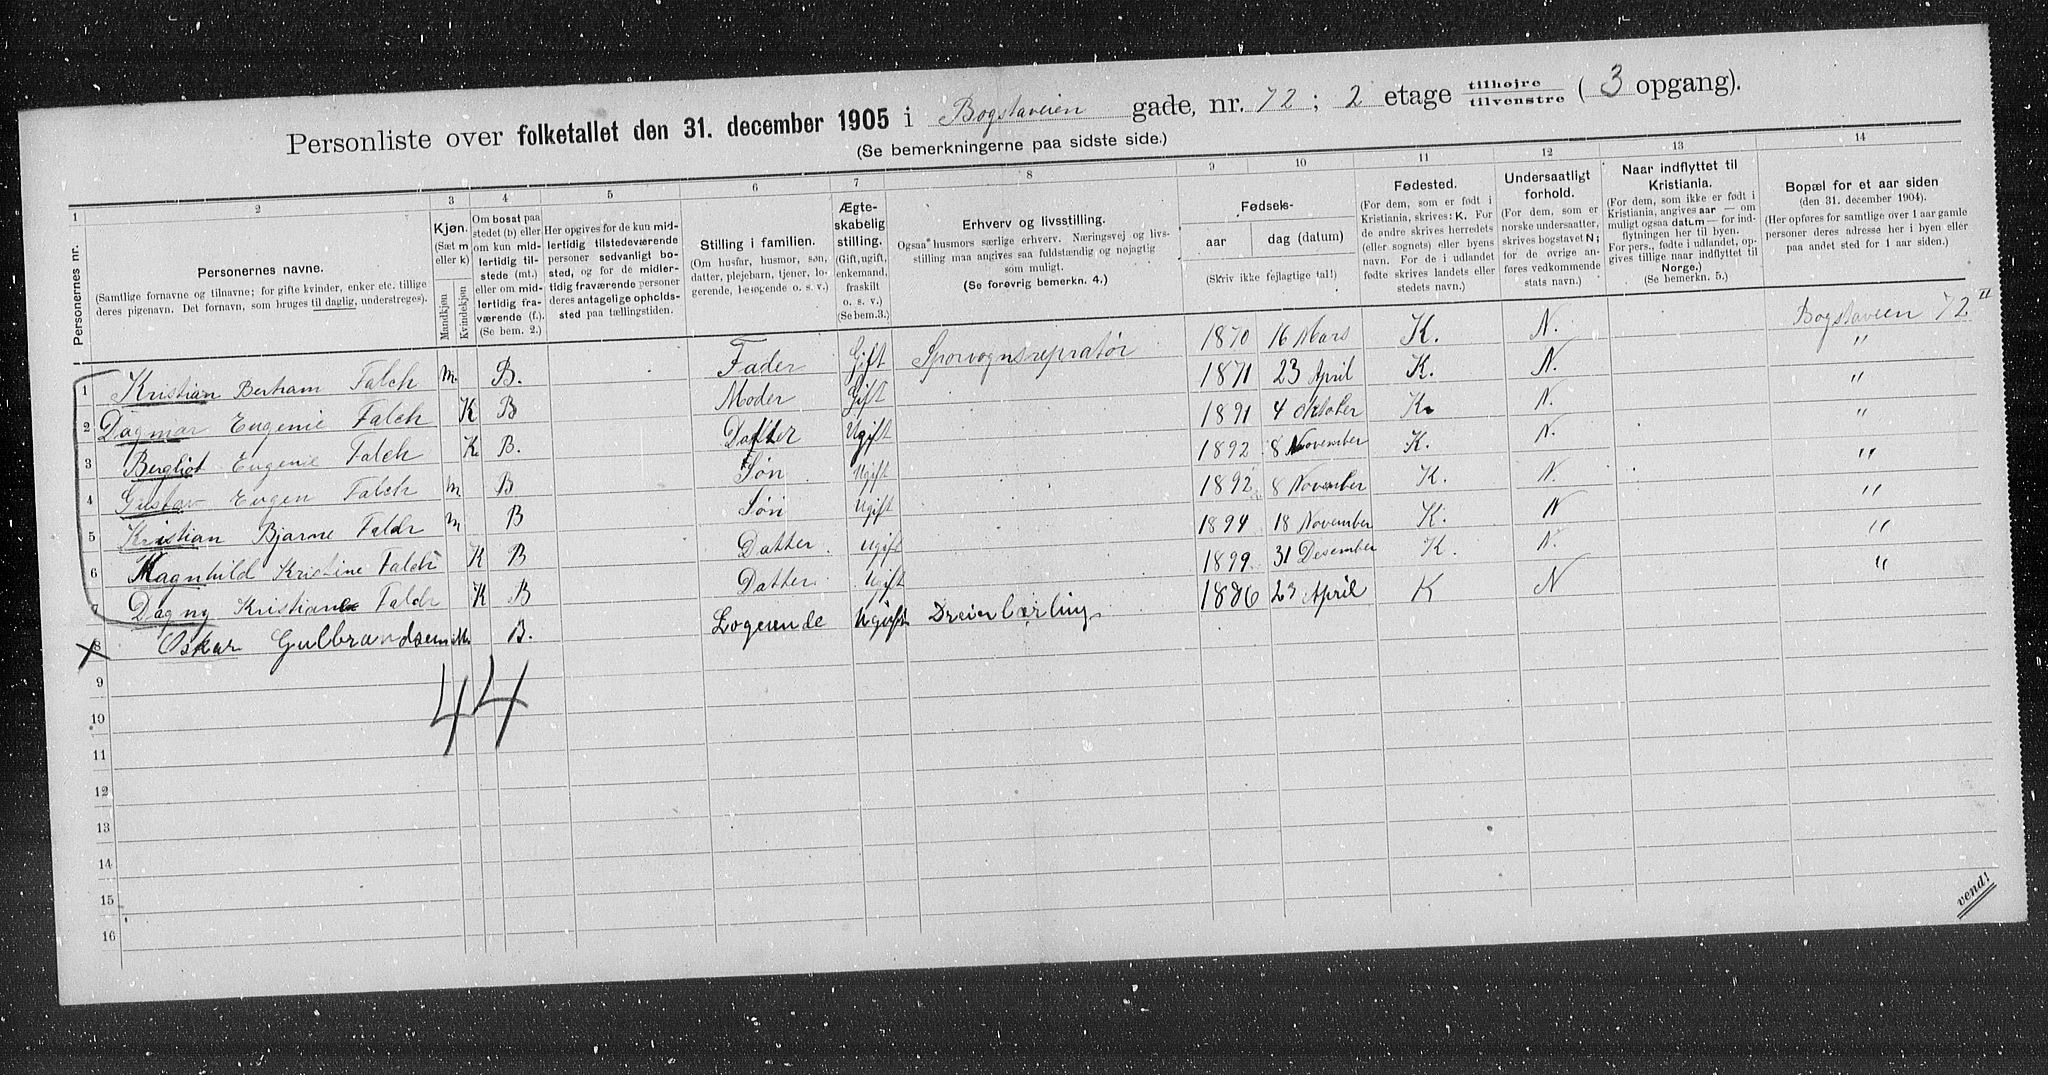 Personliste over folketallet den 31. december 1905 i Bogstaveien gade, nr. 72; 2 etage tilhøjre tilvenstre (3 opgang).
(Se bemerkningerne paa sidste side.)
1 2 3 4 5 6 7 8 9 10 11 12 13 14
Personernes nr.
Personernes navne.
(Samtlige fornavne og tilnavne; for gifte kvinder, enker etc. tillige
deres pigenavn. Det fornavn, som bruges til daglig, understreges).
Kjøn.
(Sæt m
eller k)
Mandkjøn
Kvindekjøn
Om bosat paa
stedet (b) eller
om kun mid-
lertidig til-
stede (mt.)
eller om mid-
lertidig fra-
værende (f.).
(Se bem. 2.)
Her opgives for de kun mid-
lertidig tilstedeværende
personer sedvanligt bo-
sted, og for de midler-
tidig fraværende personer
deres antagelige opholds-
sted paa tællingstiden.
Stilling i familien.
(Om husfar, husmor, søn,
datter, plejebarn, tjener, lo-
gerende, besøgende o. s. v.)
Ægte-
skabelig
stilling.
(Gift, ugift,
enkemand,
fraskilt
o. s. v.)
(Se bem.3.)
Erhverv og livsstilling.
Ogsaa husmors særlige erhverv. Næringsvej og livs-
stilling maa angives saa fuldstændig og nøjagtig
som muligt.
(Se forøvrig bemerkn. 4.)
Fødsels-
aar
dag (datum)
(Skriv ikke fejlagtige tal!)
Fødested.
(For dem, som er født i
Kristiania, skrives: K. For
de andre skrives herredets
(eller sognets) eller byens
navn. For de i udlandet
fødte skrives landets eller
stedets navn.)
Undersaatligt
forhold.
(For dem, som er
norske undersaatter,
skrives bogstavet N;
for de øvrige an-
føres vedkommende
stats navn.)
Naar indflyttet til
Kristiania.
(For dem, som ikke er født i
Kristiania, angives aar — om
muligt ogsaa datum — for ind-
flytningen her til byen.
For pers., fødte i udlandet, op-
gives tillige naar indflyttet til
Norge.)
(Se bemerkn. 5.)
Bopæl for et aar siden
(den 31. december 1904).
(Her opføres for samtlige over 1 aar gamle
personer deres adresse her i byen eller
paa andet sted for 1 aar siden.)
1 Kristian Bertram Falch m. B. Fader Gift Sporvognsrepratør 1870 16 Mars K. N. Bogstaveien 72 II
2 Dagmar Eugenie Falch K B Moder Gift 1871 23 April K. N. "
3 Bergliot Eugenie Falch K. B. Datter Ugift 1891 4 Oktober K. N. "
4 Gustav Eugen Falch m B Søn Ugift 1892 8 November K. N. "
5 Kristian Bjarne Falch m B Søn Ugift 1892 8 November K. N. "
6 Magnhild Kristine Falch K B Datter. Ugift 1894 18 November K. N "
7 Dagny Kristiane Falch K B Datter. Ugift 1899 31 Desember K. N. "
X 8 Oskar Gulbrandsen M. B. Logerende Ugift Dreierlærling 1886 23 April K N "
9
44
10
11
12
13
14
15
16
vend!